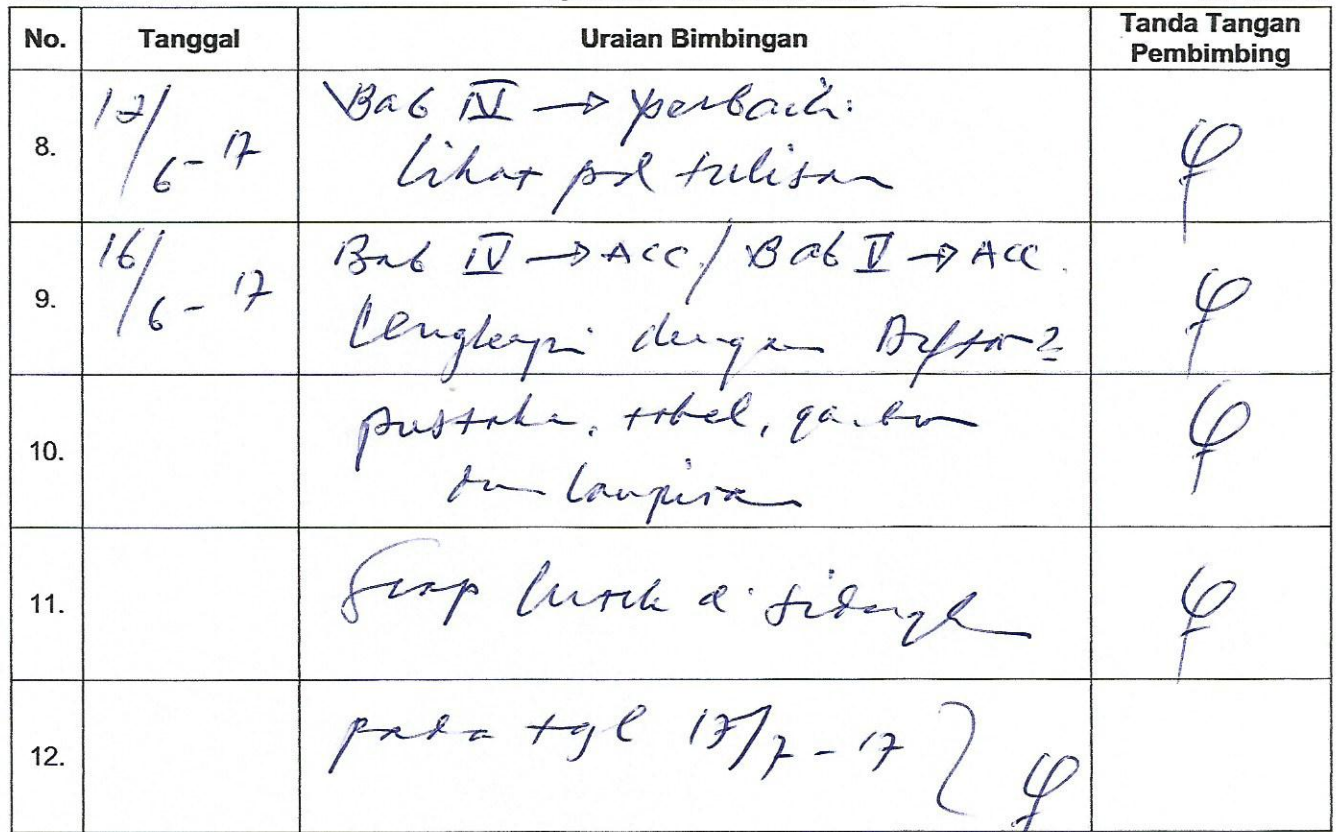 No. Tanggal Uraian Bimbingan Tanda Tangan Pembimbing
8. 6-17 Bab IV → perbaiki:
Lihat pd tulisan
9. 16/6-17 Bab IV → ACC / Bab V → ACC.
Lengkapi dengan Daftar2
10. pustaka, tabel, gambar
dan lampiran
11. Siap untuk di sidangk
12. pada tgl 17/7-17